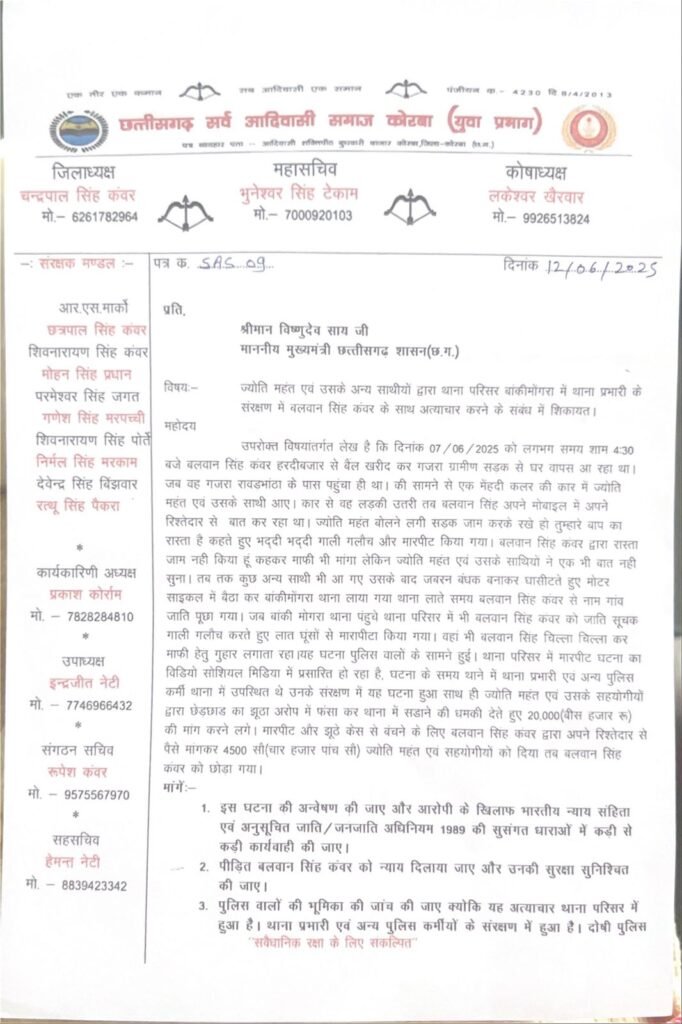 एक तीर एक कमान
सब आदिवासी एक समान
पंजीयन क.- 4230 दि 8/4/2013
छत्तीसगढ़ सर्व आदिवासी समाज कोरबा (युवा प्रभाग)
पत्र व्यवहार पता – आदिवासी शक्तिपीठ बुधवारी बाजार कोरबा,जिला-कोरबा (छ.ग.)
जिलाध्यक्ष
चन्द्रपाल सिंह कंवर
मो.– 6261782964
महासचिव
भुनेश्वर सिंह टेकाम
मो.– 7000920103
कोषाध्यक्ष
लकेश्वर खैरवार
मो.– 9926513824
–: संरक्षक मण्डल :–
पत्र क. SAS 09
दिनांक 12/06/2025
आर.एस.मार्को
छत्रपाल सिंह कंवर
शिवनारायण सिंह कंवर
मोहन सिंह प्रधान
परमेश्वर सिंह जगत
गणेश सिंह मरपच्ची
शिवनारायण सिंह पोर्ते
निर्मल सिंह मरकाम
देवेन्द्र सिंह बिंझवार
रत्थू सिंह पैकरा
*
कार्यकारिणी अध्यक्ष
प्रकाश कोर्राम
मो. – 7828284810
*
उपाध्यक्ष
इन्द्रजीत नेटी
मो. – 7746966432
*
संगठन सचिव
रूपेश कंवर
मो. – 9575567970
*
सहसचिव
हेमन्त नेटी
मो. – 8839423342
प्रति,
श्रीमान विष्णुदेव साय जी
माननीय मुख्यमंत्री छत्तीसगढ़ शासन(छ.ग.)
विषय:– ज्योति महंत एवं उसके अन्य साथीयों द्वारा थाना परिसर बांकीमोंगरा में थाना प्रभारी के
संरक्षण में बलवान सिंह कंवर के साथ अत्याचार करने के संबंध में शिकायत।
महोदय
उपरोक्त विषयांतर्गत लेख है कि दिनांक 07/06/2025 को लगभग समय शाम 4:30
बजे बलवान सिंह कंवर हरदीबजार से बैल खरीद कर गजरा ग्रामीण सड़क से घर वापस आ रहा था।
जब वह गजरा रावडभांठा के पास पहुंचा ही था। की सामने से एक मेंहदी कलर की कार में ज्योति
महंत एवं उसके साथी आए। कार से वह लड़की उतरी तब बलवान सिंह अपने मोबाइल में अपने
रिश्तेदार से बात कर रहा था। ज्योति महंत बोलने लगी सडक जाम करके रखे हो तुम्हारे बाप का
रास्ता है कहते हुए भद्दी भद्दी गाली गलौच और मारपीट किया गया। बलवान सिंह कंवर द्वारा रास्ता
जाम नही किया हूं कहकर माफी भी मांगा लेकिन ज्योति महंत एवं उसके साथियों ने एक भी बात नही
सुना। तब तक कुछ अन्य साथी भी आ गए उसके बाद जबरन बंधक बनाकर घासीटते हुए मोटर
साइकल में बैठा कर बांकीमोंगरा थाना लाया गया थाना लाते समय बलवान सिंह कंवर से नाम गांव
जाति पूछा गया। जब बांकी मोगरा थाना पंहुचे थाना परिसर में भी बलवान सिंह कंवर को जाति सूचक
गाली गलौच करते हुए लात घूंसों से मारापीटा किया गया। वहां भी बलवान सिंह चिल्ला चिल्ला कर
माफी हेतु गुहार लगाता रहा।यह घटना पुलिस वालों के सामने हुई। थाना परिसर में मारपीट घटना का
विडियो सोशियल मिडिया में प्रसारित हो रहा है, घटना के समय थाने में थाना प्रभारी एवं अन्य पुलिस
कर्मी थाना में उपरिथत थे उनके संरक्षण में यह घटना हुआ साथ ही ज्योति महंत एवं उसके सहयोगीयों
द्वारा छेड़छाड का झूठा अरोप में फंसा कर थाना में सडाने की धमकी देते हुए 20,000(बीस हजार रू)
की मांग करने लगे। मारपीट और झूठे केस से बंचने के लिए बलवान सिंह कंवर द्वारा अपने रिश्तेदार से
पैसे मांगकर 4500 सौ(चार हजार पांच सौ) ज्योति महंत एवं सहयोगीयों को दिया तब बलवान सिंह
कंवर को छोडा गया।
मांगें:–
1. इस घटना की अन्वेषण की जाए और आरोपी के खिलाफ भारतीय न्याय संहिता
एवं अनुसूचित जाति/जनजाति अधिनियम 1989 की सुसंगत धाराओं में कड़ी से
कड़ी कार्यवाही की जाए।
2. पीड़ित बलवान सिंह कंवर को न्याय दिलाया जाए और उनकी सुरक्षा सुनिश्चित
की जाए।
3. पुलिस वालों की भूमिका की जांच की जाए क्योकि यह अत्याचार थाना परिसर में
हुआ है। थाना प्रभारी एवं अन्य पुलिस कर्मीयों के संरक्षण में हुआ है। दोषी पुलिस
"सवैधानिक रक्षा के लिए सकल्पित"